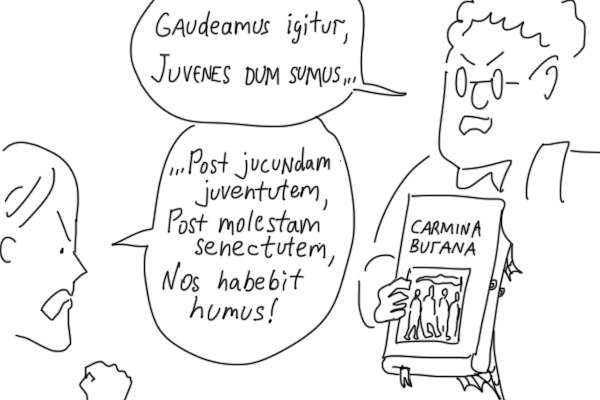 Gaudeamus igitur,
Juvenes dum sumus...
...Post jucundam
juventutem,
Post molestam
senectutem,
Nos habebit
humus!
CARMINA
BURANA